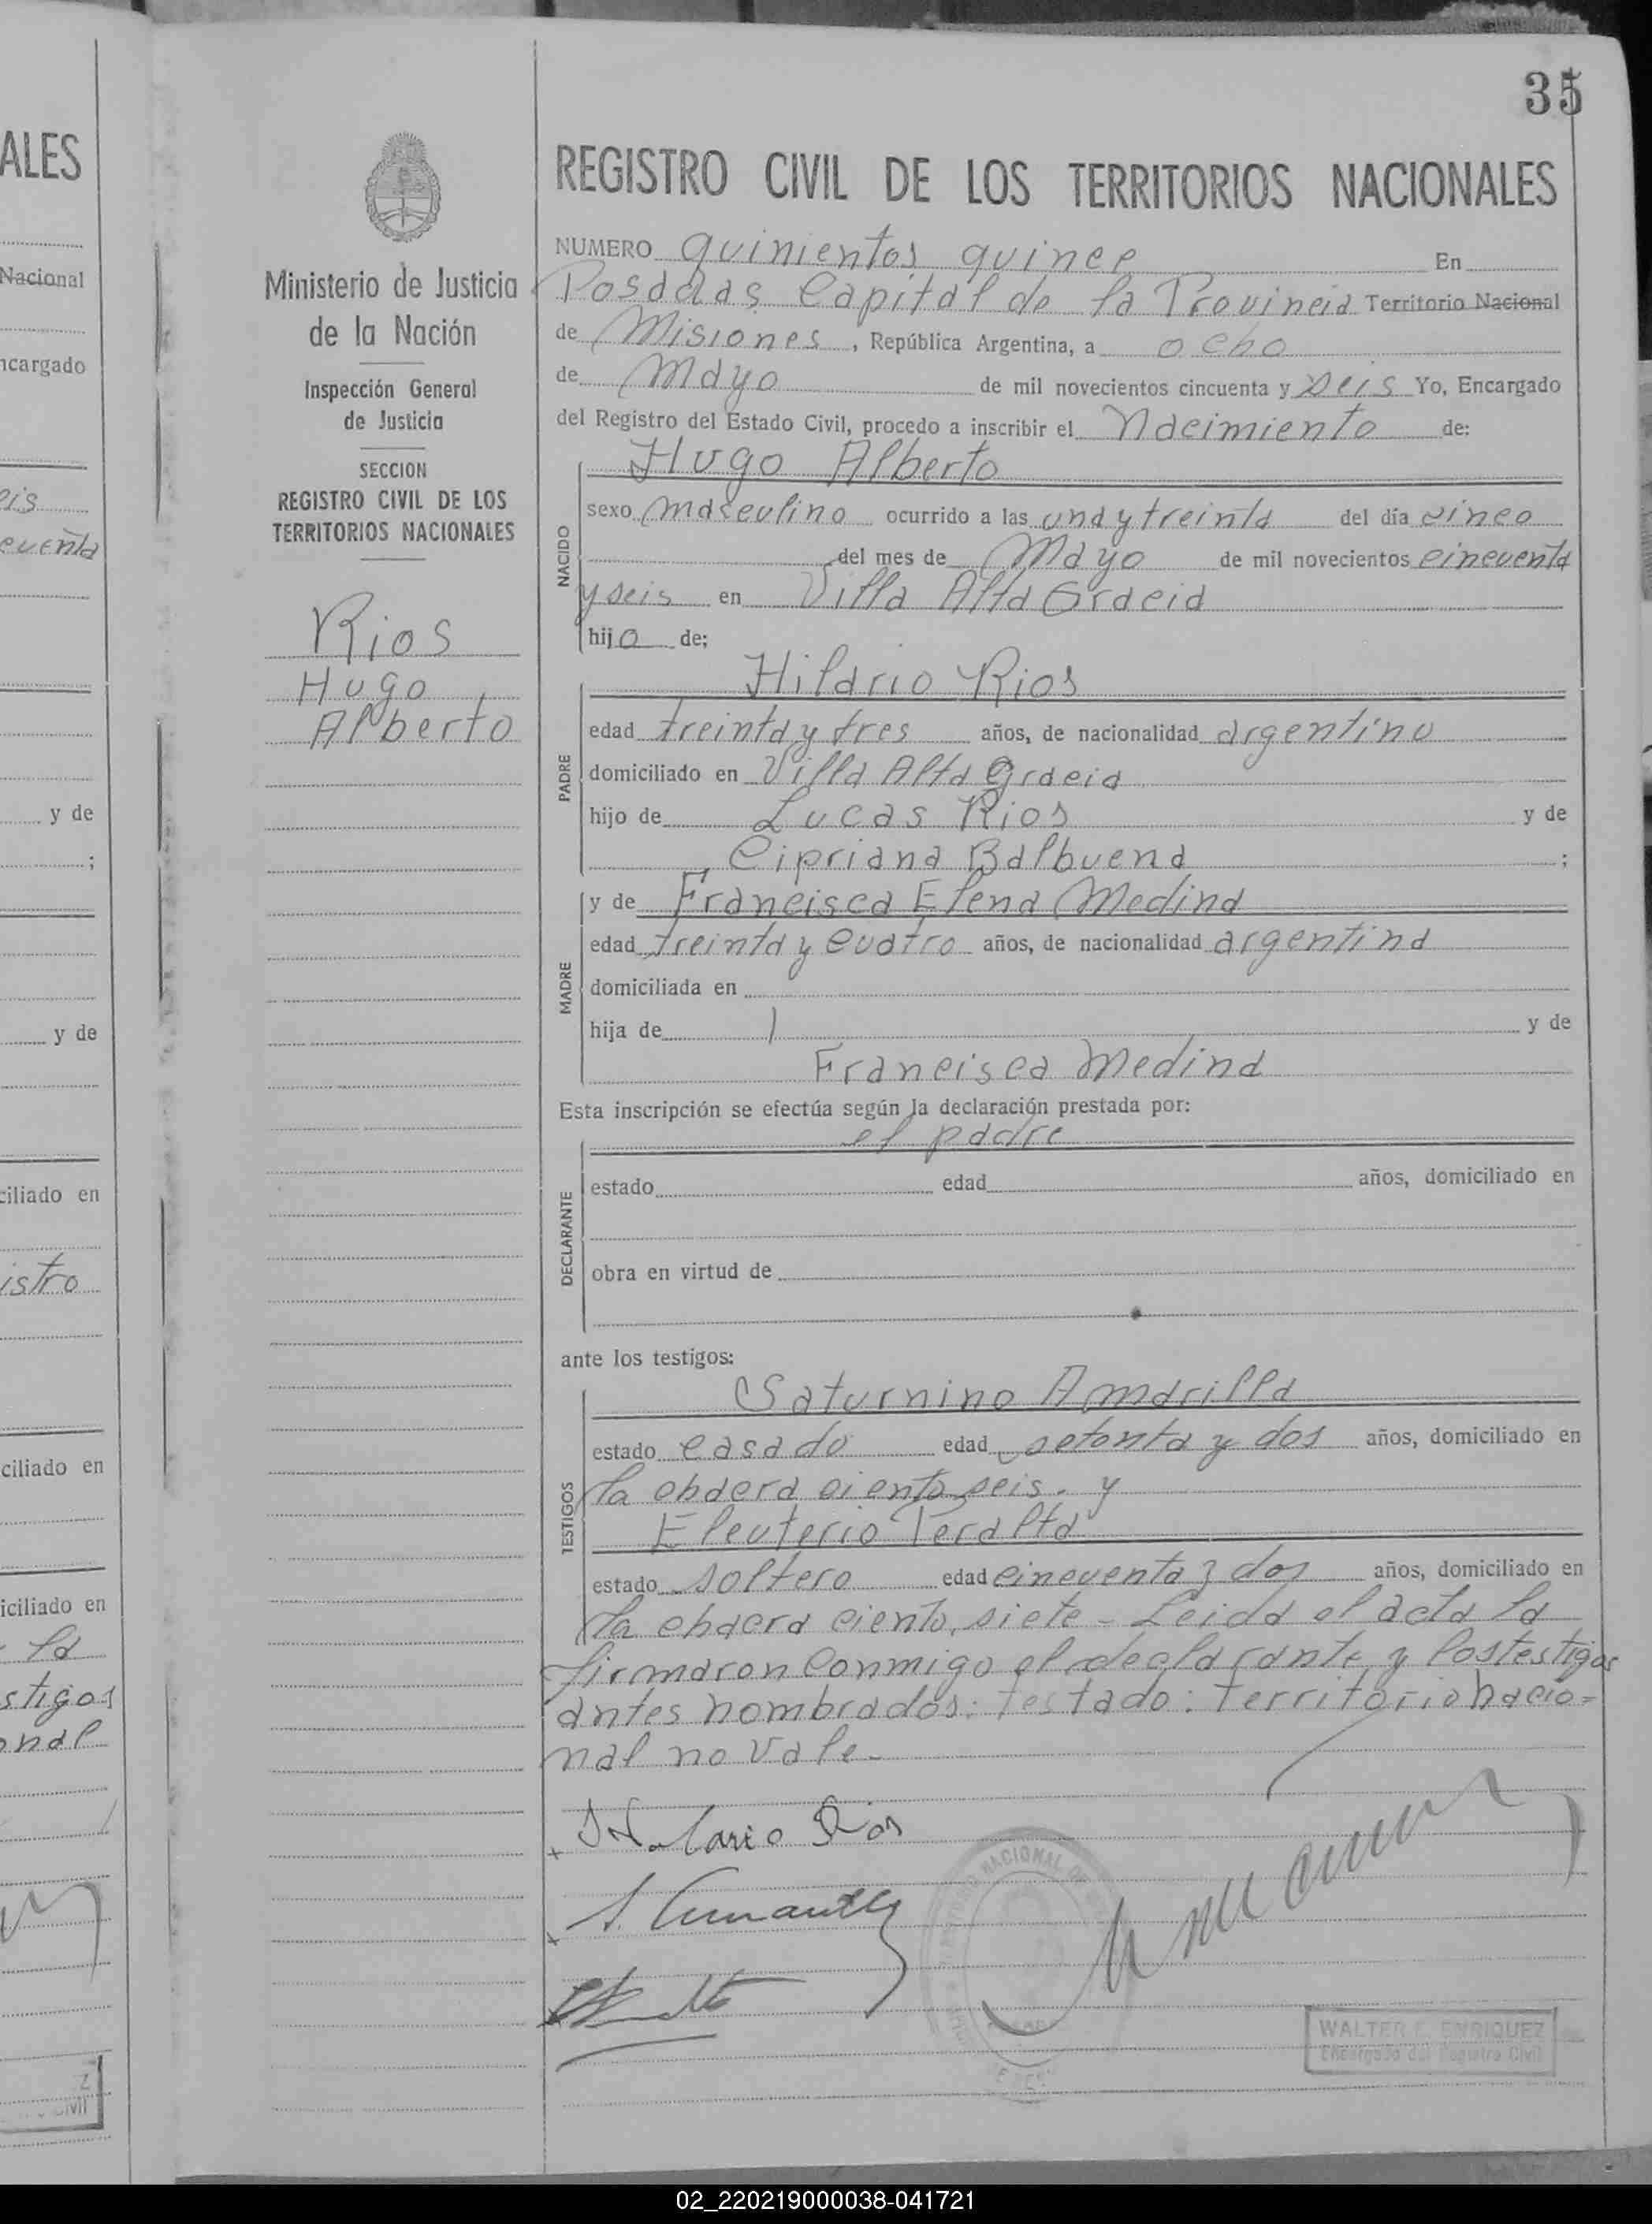 35
REGISTRO CIVIL DE LOS TERRITORIOS NACIONALES
NUMERO quinientos quince En
Posadas Capital de la Provincia Territorio Nacional
de Misiones, República Argentina, a ocho
de Mayo de mil novecientos cincuenta y seis Yo, Encargado
del Registro del Estado Civil, procedo a inscribir el Nacimiento de:
NACIDO
Hugo Alberto
sexo masculino ocurrido a las una y treinta del día cinco
del mes de Mayo de mil novecientos cincuenta
y seis en Villa Alta Gracia
hijo de;
PADRE
Hilario Rios
edad treinta y tres años, de nacionalidad argentino
domiciliado en Villa Alta Gracia
hijo de Lucas Rios y de
Cipriana Balbuena ;
MADRE
y de Francisca Elena Medina
edad treinta y cuatro años, de nacionalidad argentina
domiciliada en
hija de y de
Francisca Medina
Esta inscripción se efectúa según la declaración prestada por:
DECLARANTE
el padre
estado edad años, domiciliado en
obra en virtud de
ante los testigos:
TESTIGOS
Saturnino Amarilla
estado casado edad setenta y dos años, domiciliado en
la chacra ciento seis. y
Eleuterio Peralta
estado soltero edad cincuenta y dos años, domiciliado en
la chacra ciento siete - Leida el acta la
firmaron conmigo el declarante y los testigos
antes nombrados: Testado: territorio nacio=
nal no vale.
Rios
WALTER F. ENRIQUEZ
Encargado del Registro Civil
Ministerio de Justicia
de la Nación
Inspección General
de Justicia
SECCION
REGISTRO CIVIL DE LOS
TERRITORIOS NACIONALES
Rios
Hugo
Alberto
ALES
Nacional
ncargado
eis
cuenta
y de
;
y de
ciliado en
istro
ciliado en
iciliado en
la
stigos
onal
02_220219000038-041721